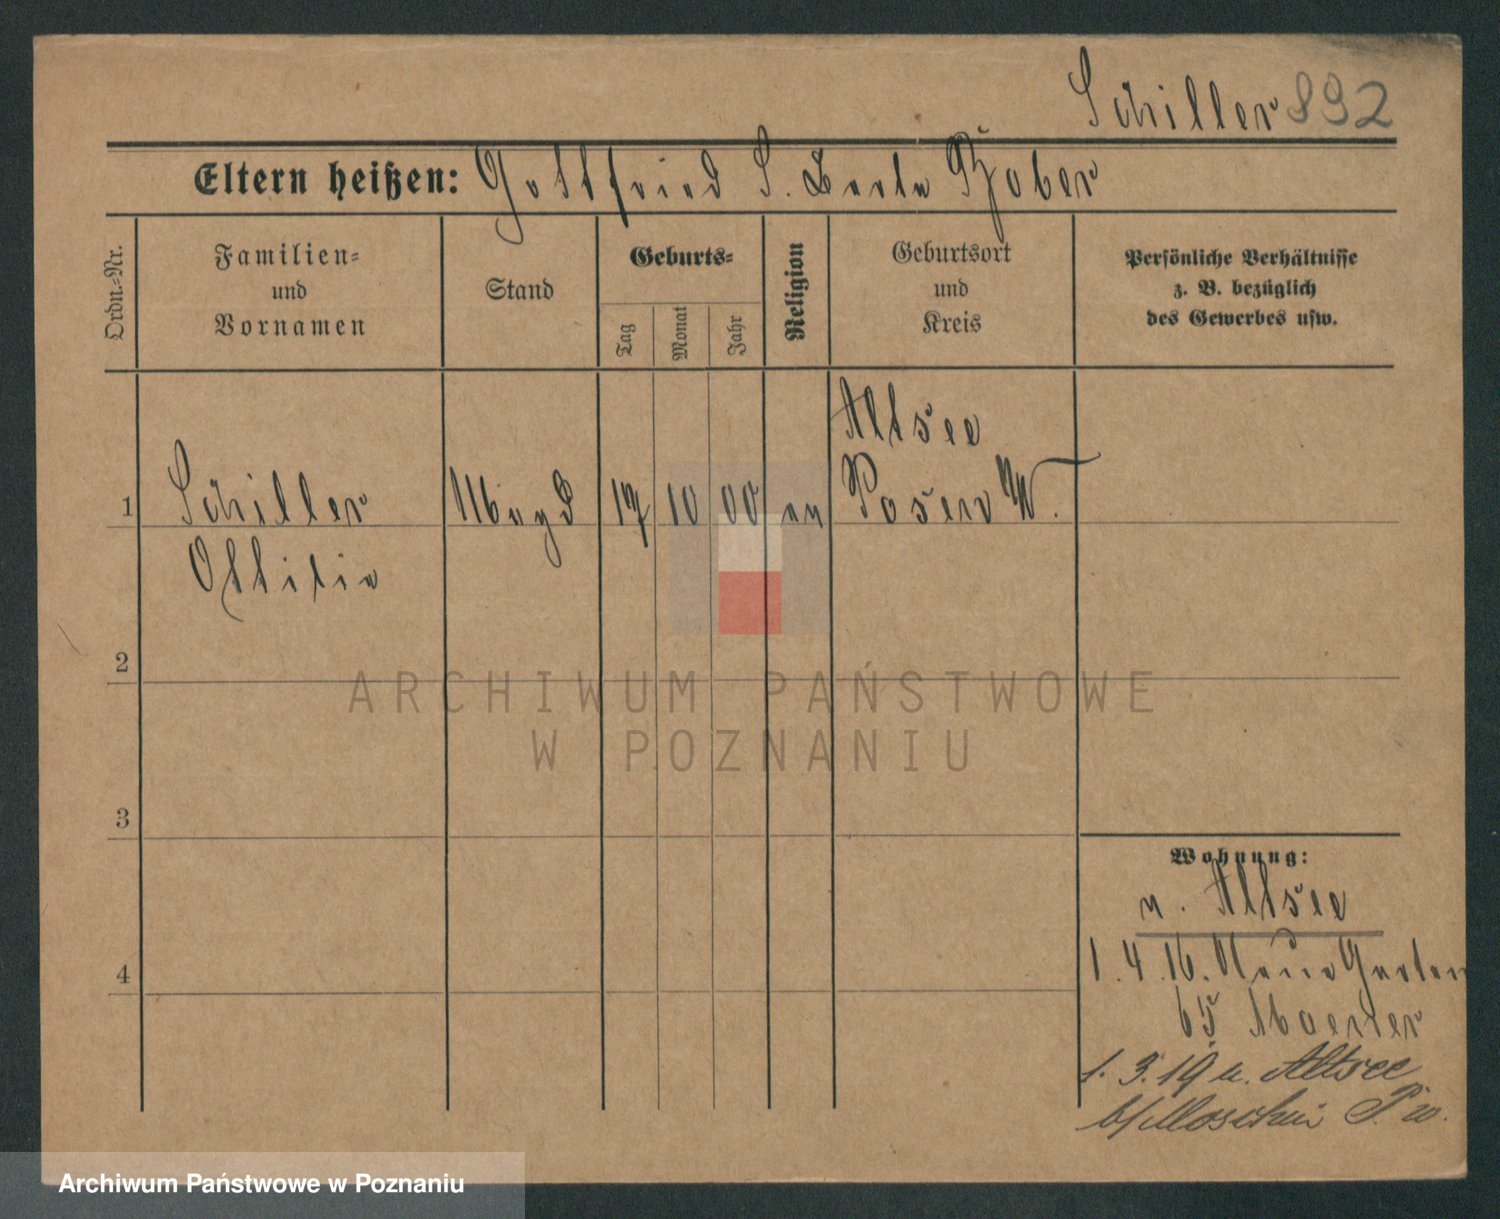 Schiller 892
Eltern heißen: Gottfried S. Berta Bober
Ordn.-Nr.
Familien-
und
Vornamen
Stand
Geburts-
Tag
Monat
Jahr
Religion
Geburtsort
und
Kreis
Persönliche Verhältnisse
z. B. bezüglich
des Gewerbes usw.
Altsee
1 Schiller Magd 17 10 00 Posen W.
Ottilie
2
ARCHIWUM PAŃSTWOWE
W POZNANIU
3
Wohnung:
n. Altsee
4
1.4.16. Neue Garten
65
1.3.19 n. Altsee
b/Moschin P. W.
Archiwum Państwowe w Poznaniu